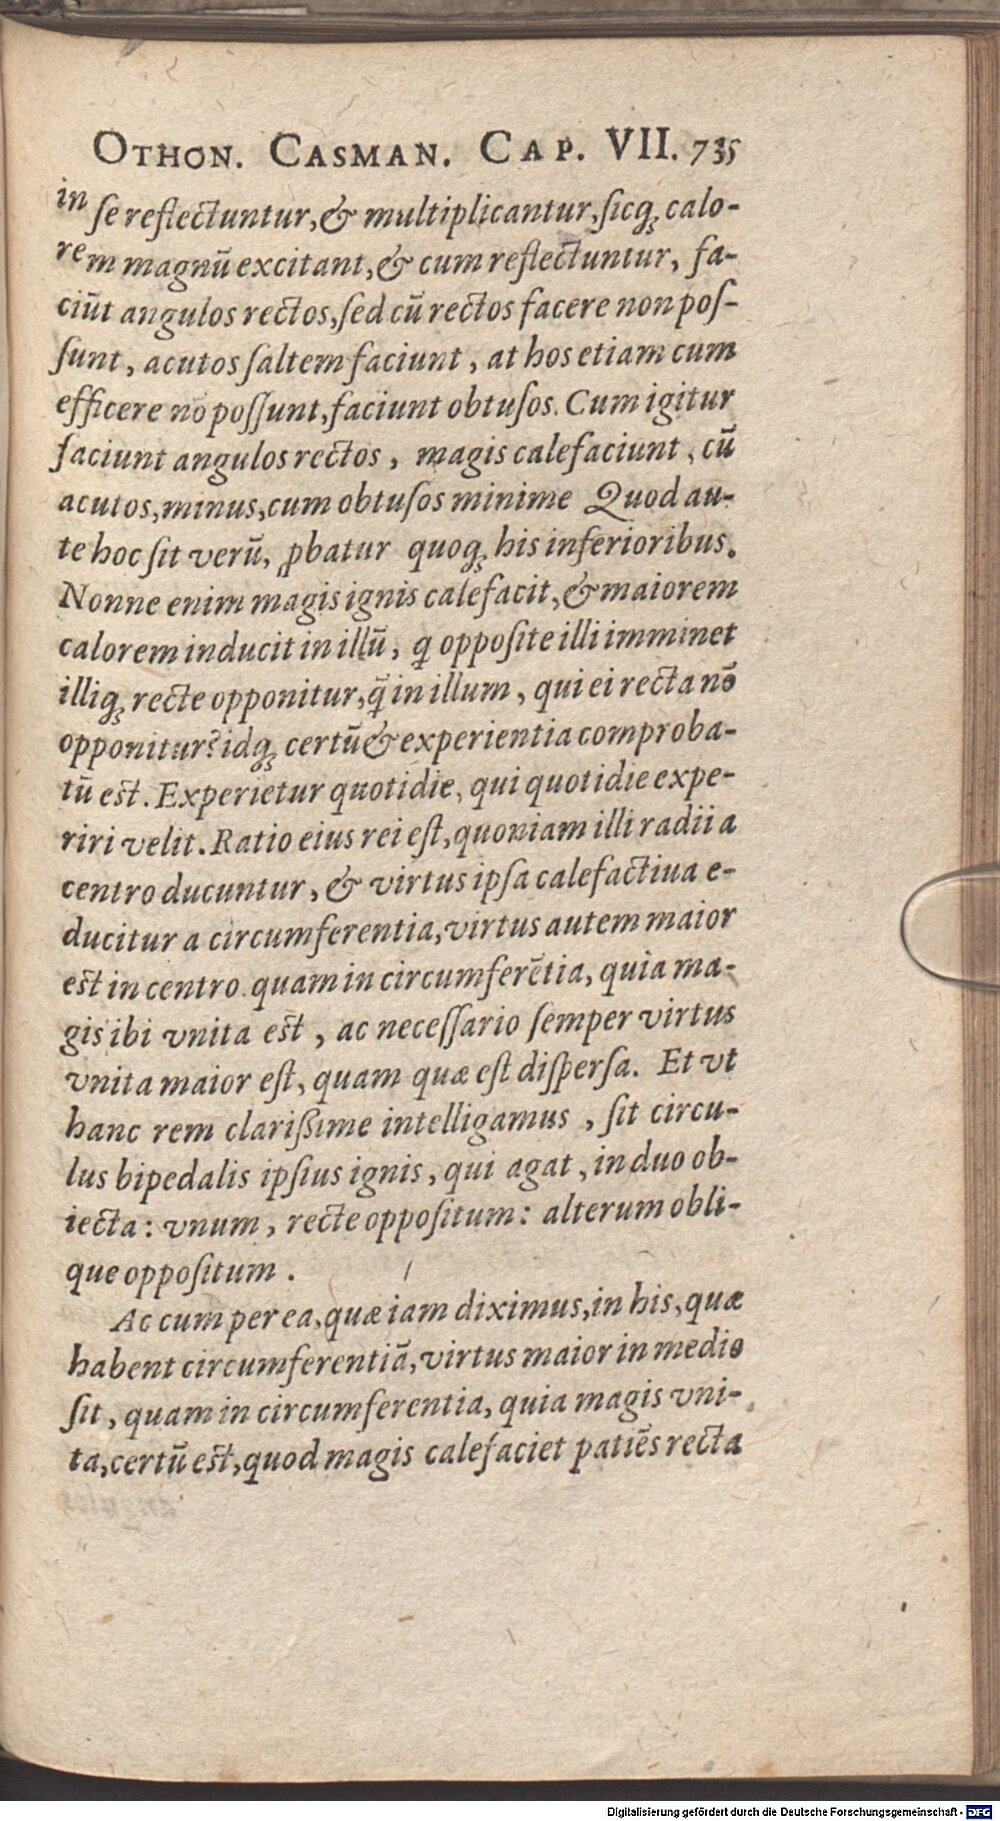 OTHON. CASMAN. CAP. VII. 735
in ſe reflectuntur, & multiplicantur, ſicq́; calo-
rem magnū excitant, & cum reflectuntur, fa-
ciūt angulos rectos, ſed cū rectos facere non poſ-
ſunt, acutos ſaltem faciunt, at hos etiam cum
efficere nō poſſunt, faciunt obtuſos. Cum igitur
faciunt angulos rectos, magis calefaciunt, cū
acutos, minus, cum obtuſos minime Quod au-
te hoc ſit verū, ꝓbatur quoq; his inferioribus.
Nonne enim magis ignis calefacit, & maiorem
calorem inducit in illū, q oppoſite illi imminet
illiq; recte opponitur, q̄ in illum, qui ei recta nō
opponitur? idq; certū & experientia comproba-
tū est. Experietur quotidie, qui quotidie expe-
riri velit. Ratio eius rei eſt, quoniam illi radii a
centro ducuntur, & virtus ipſa calefactiua e-
ducitur a circumferentia, virtus autem maior
est in centro quam in circumferētia, quia ma-
gis ibi vnita est, ac neceſſario ſemper virtus
vnita maior eſt, quam quæ eſt diſperſa. Et vt
hanc rem clariſsime intelligamus, ſit circu-
lus bipedalis ipſius ignis, qui agat, in duo ob-
iecta: vnum, recte oppoſitum: alterum obli-
que oppoſitum.
Ac cum per ea, quæ iam diximus, in his, quæ
habent circumferentiā, virtus maior in medio
ſit, quam in circumferentia, quia magis vni-
ta, certū est, quod magis calefaciet patiēs recta
Digitalisierung gefördert durch die Deutsche Forschungsgemeinschaft - DFG